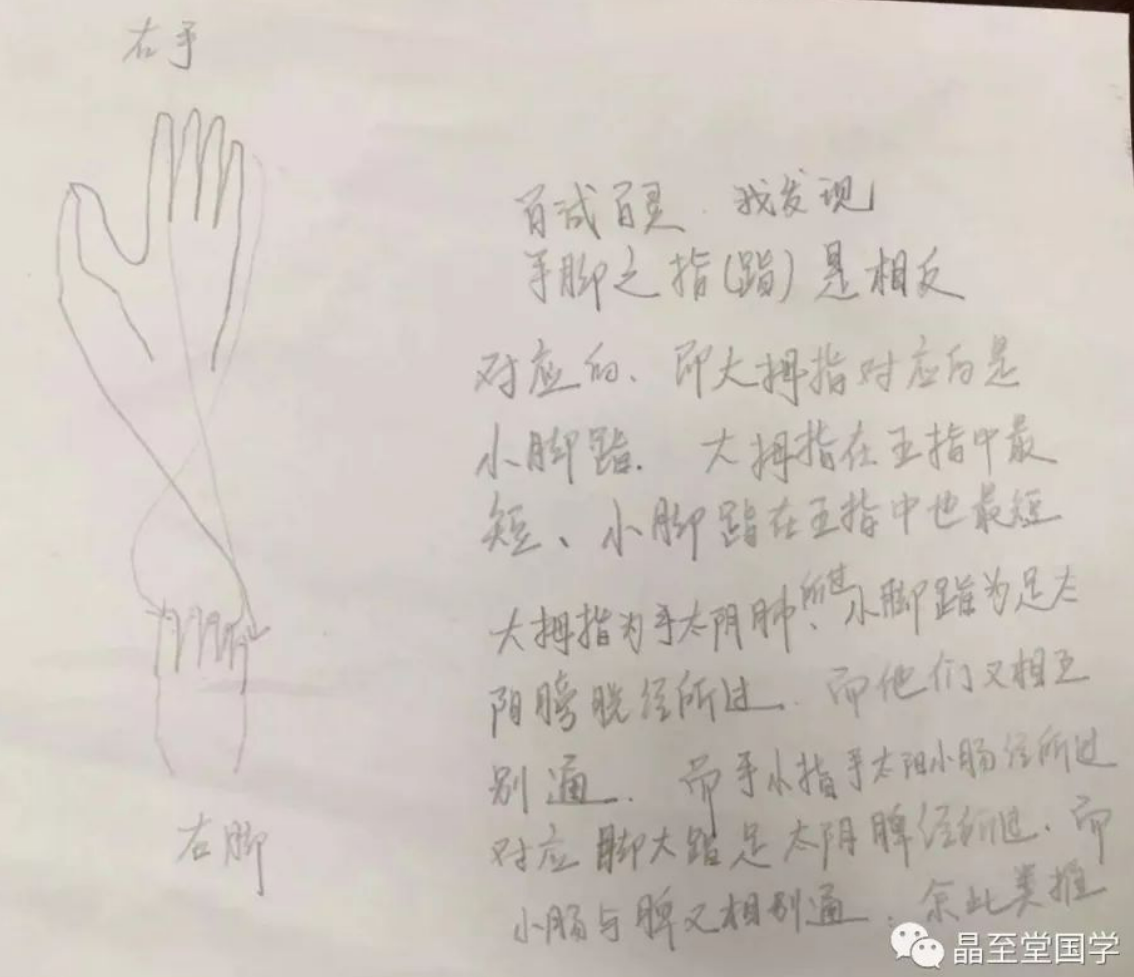 右手
百试百灵. 我发现
手脚之指(趾)是相反
对应的、即大拇指对应的是
小脚趾. 大拇指在五指中最
短、小脚趾在五指中也最短
大拇指为手太阴肺所过、小脚趾为足太
阳膀胱经所过. 而他们又相互
别通. 而手小指手太阳小肠经所过
对应脚大趾足太阴脾经所过. 而
小肠与脾又相别通. 余此类推
右脚
晶至堂国学